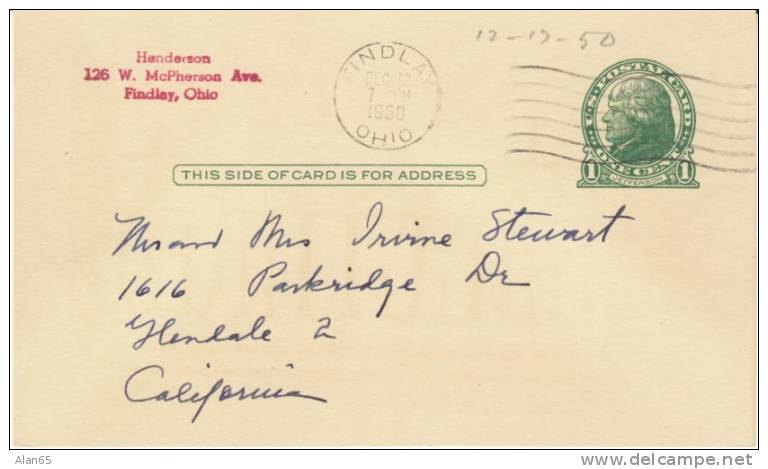 12-17-50
Henderson
126 W. McPherson Ave.
Findlay, Ohio
FINDLAY
DEC
7 PM
1950
OHIO
U.S. POSTAL CARD
ONE CENT
1 JEFFERSON 1
THIS SIDE OF CARD IS FOR ADDRESS
Mr and Mrs Irvine Stewart
1616 Parkridge Dr
Glendale 2
California
Alan65
delcampe.net